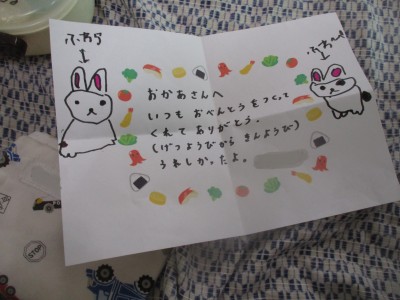 ふわら
おかあさんへ
いつもおべんとうをつくって
くれてありがとう。
(げつようびからきんようび)
うれしかったよ。
STOP